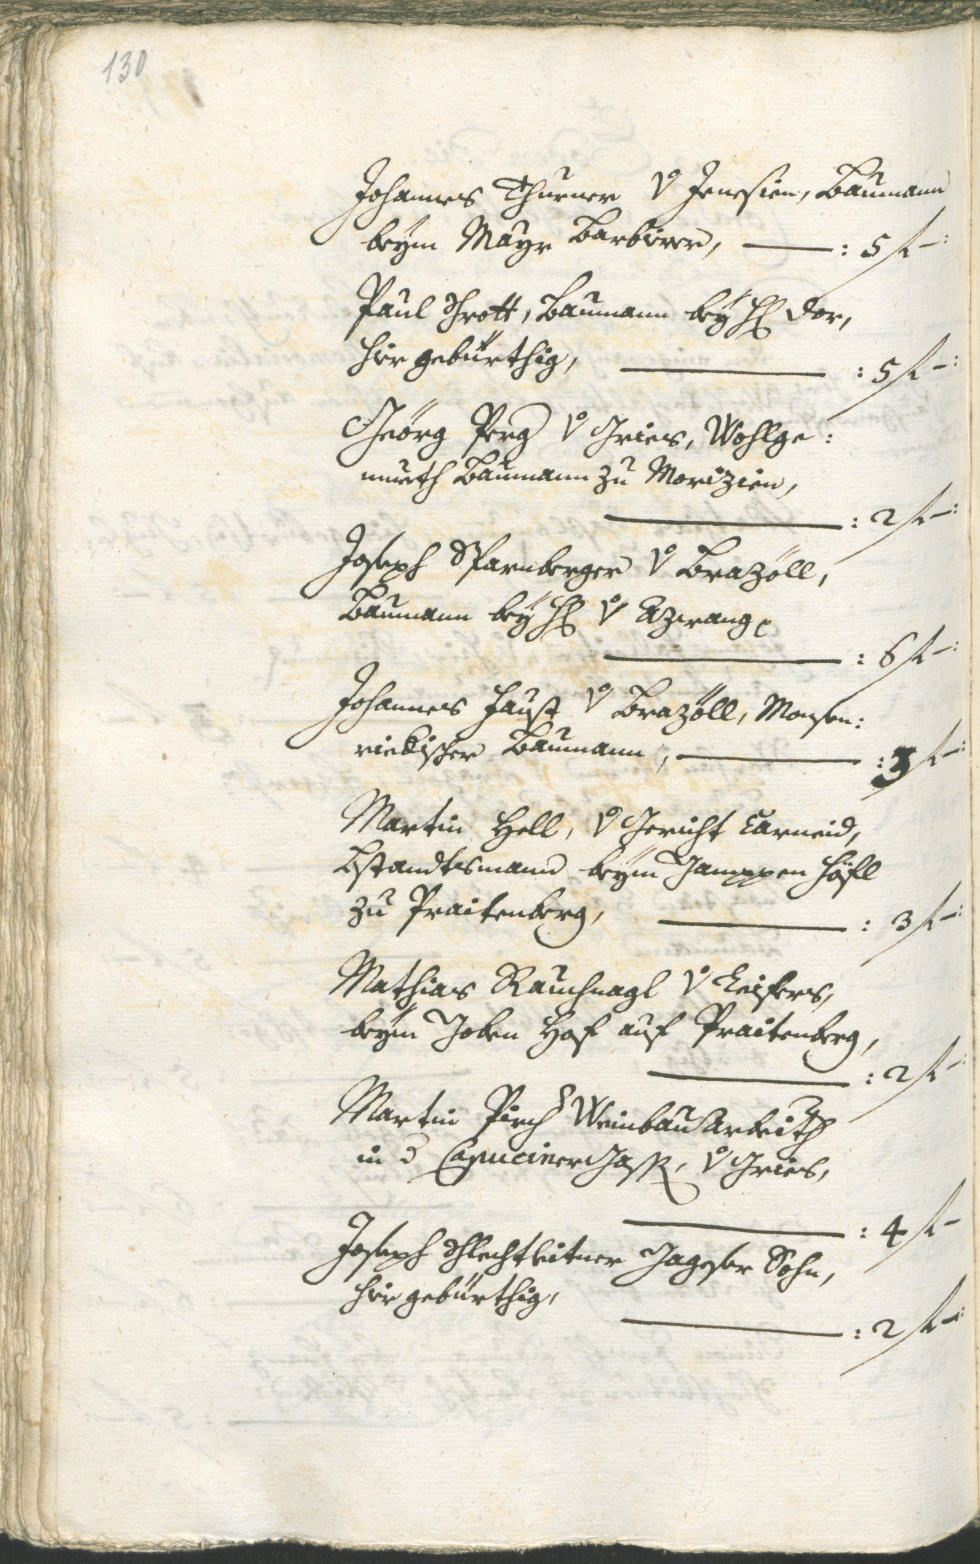 130
Johannes Thurner v Jenesien, Baumann
beÿm Maÿr Barbierer, : 5 f –:
Paul Schrott, Baumann beÿ H: Dor,
hir gebürthig, : 5 f –:
Geörg Perg v Gries, Wohlge:
mueth Baumann zu Morizien,
: 2 f –:
Joseph Sparnberger v Brazöll,
Baumann beÿ H: v Azwang,
: 6 f –:
Johannes Faust v Brazöll, Menßen:
riekischer Baumann, : 3 f –:
Martin Hell, v Gericht Karneid,
Bstandtsmann beÿm Jamppen Höfl
zu Praitenberg, : 3 f –:
Mathias Rauchnagl v Leifers,
beÿm Joben Hof auf Praitenberg,
: 2 f –:
Martin Pirch Weinbau Arbeith
in d CapucinerGass, v Gries,
: 4 f –
Joseph Schlechtleitner Jageser Sohn,
hir gebürthig,
: 2 f –: